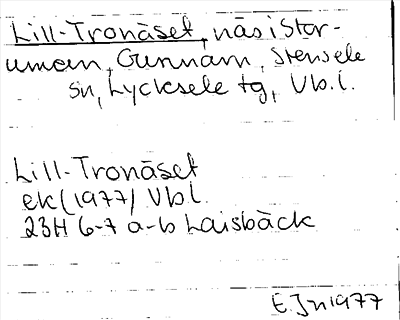 Lill-Tronäset, näs i Stor-
uman, Gunnarn, Stensele
sn, Lycksele tg, Vb.l.
Lill-Tronäset
ek (1977) Vbl.
23H 6-7 a-b Laisbäck
E.Jn 1977